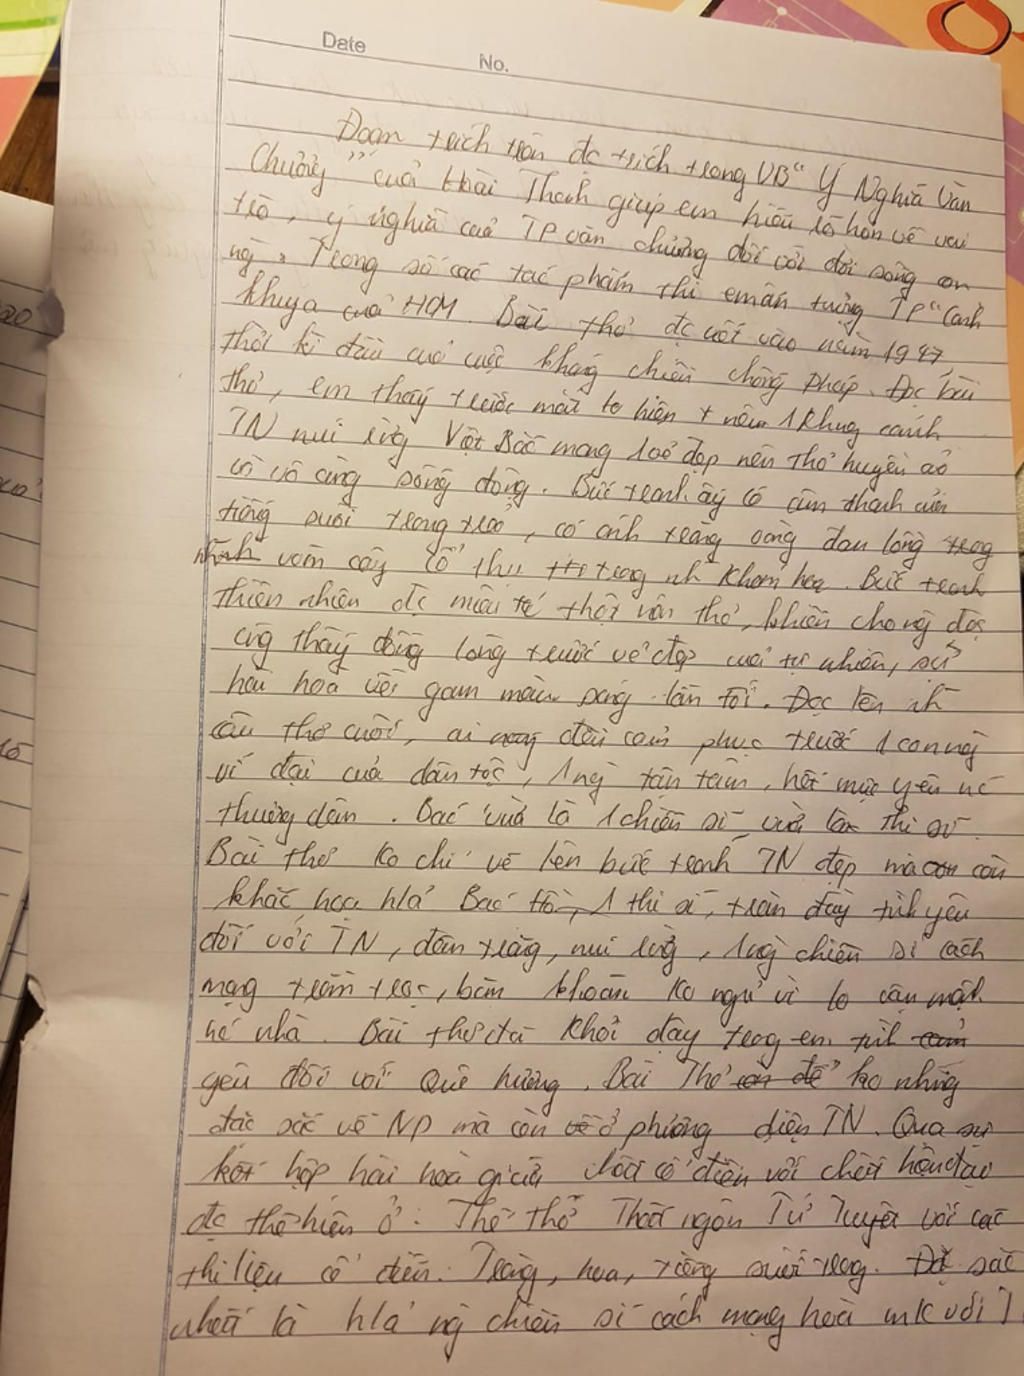 Date No.
Đoạn trích trên đc trích trong VB "Ý Nghĩa Văn
Chương" của Hoài Thanh giúp em hiểu rõ hơn về vai
trò, ý nghĩa của TP văn chương đối với đời sống con
ng. Trong số các tác phẩm thì em ấn tượng TP "Cảnh
khuya của HCM. Bài thơ đc viết vào năm 1947
thời kì đầu của cuộc kháng chiến chống Pháp. Đọc bài
thơ, em thấy trước mắt hiện nên 1 khug cảnh
TN núi rừng Việt Bắc mang vẻ đẹp nên thơ huyền ảo
và vô cùng sống động. Bức tranh ấy có âm thanh của
tiếng suối trong trẻo, có ánh trăng vàng đan lồng trog
vòm cây cổ thụ trog nh khóm hoa. Bức tranh
thiên nhiên đc miêu tả thật nên thơ, khiến cho ng đọc
cũg thấy động lòng trước vẻ đẹp của tự nhiên, sự
hài hoa với gam màu sáng lẫn tối. Đọc lên nh
câu thơ cuối, ai đều cảm phục trước 1 con ng
vĩ đại của dân tộc, 1 ng tận tâm, hết mực yên nc
thương dân. Bác vừa là 1 chiến sĩ vừa là thi sĩ.
Bài thơ ko chỉ vẽ lên bức tranh TN đẹp mà còn
khắc họa h/ả Bác Hồ, 1 thi sĩ, tràn đầy tình yêu
đối với TN, đêm trăng, núi rừng, 1 ng chiến sĩ cách
mạng trằm trọc, băn khoăn ko ngủ vì lo vận mệnh
nc nhà. Bài thơ đã khơi dậy trog em tình
yêu đối với Quê hương. Bài Thơ ko những
đặc sắc về NP mà còn ở phương diện TN. Qua sự
kết hợp hài hoà giữa chất cổ điển với chất hiện đại
đc thể hiện ở: Thể thơ Thất ngôn Tứ Tuyệt với các
thi liệu cổ điển: Trăng, hoa, tiếng suối trog. Đặc sắc
nhất là h/ả ng chiến sĩ cách mạng hoà mk với T